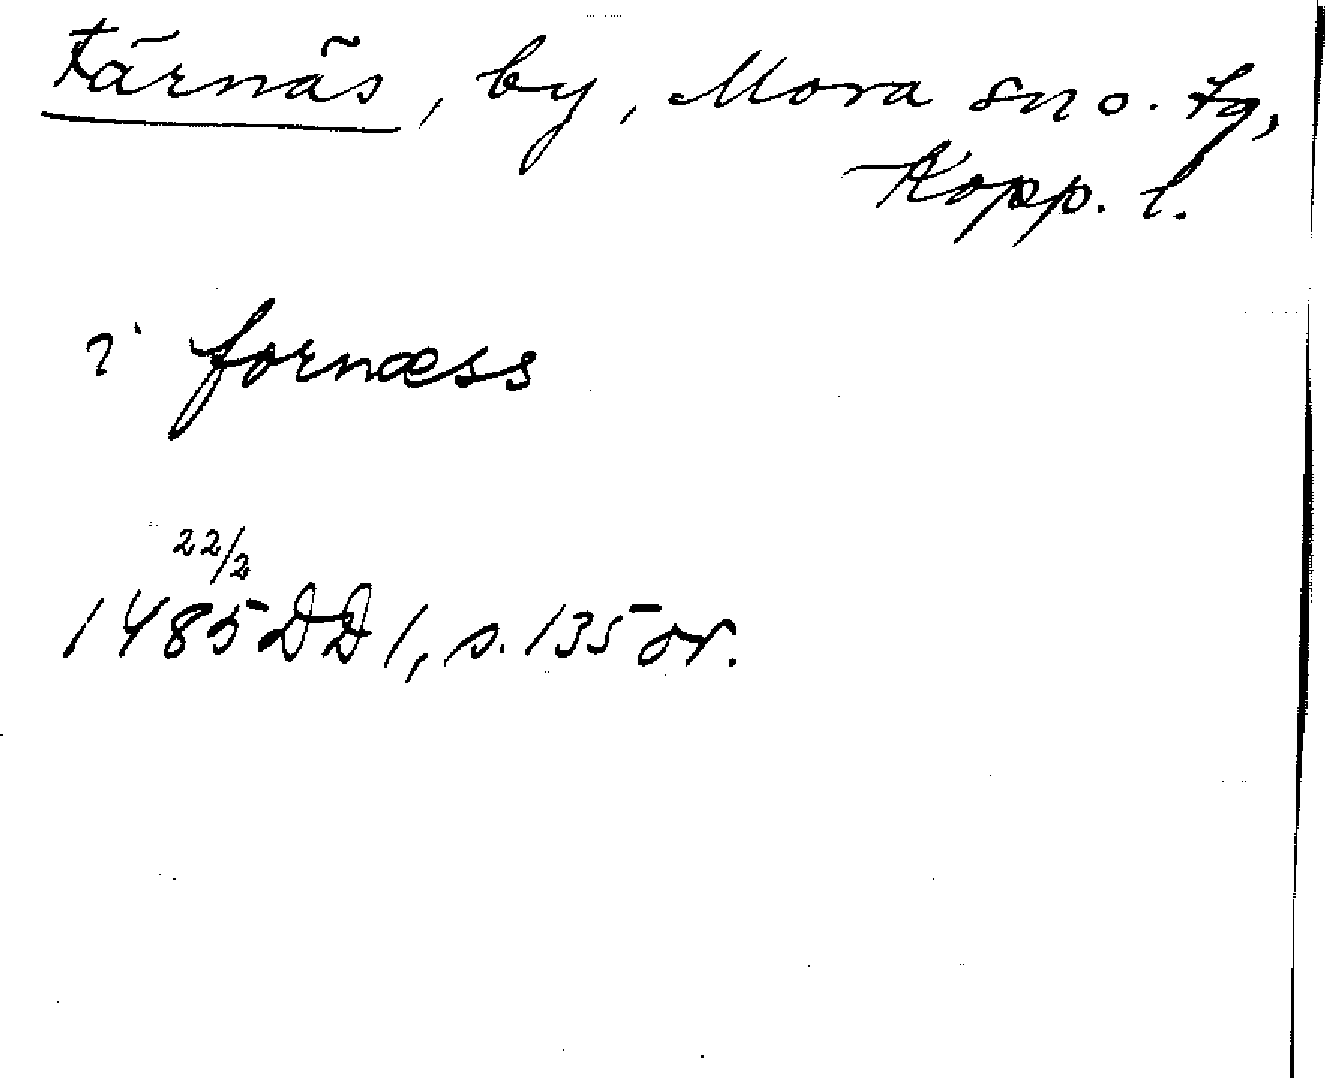 Färnäs, by, Mora sn o. tg,
Kopp. l.
i fornæss
22/2
1485 DD 1, s. 135 or.